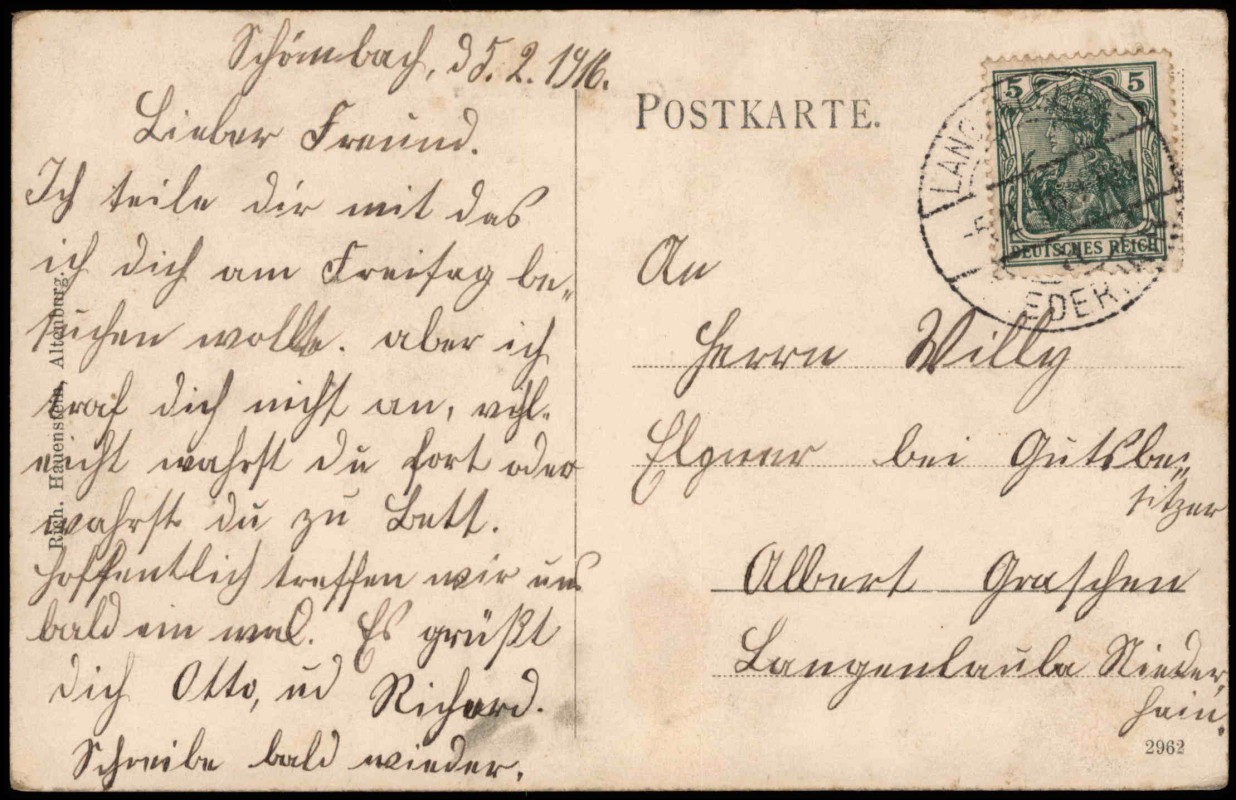 Schömbach, d 5. 2. 1916.
Lieber Freund.
Ich teile dir mit das
ich dich am Freitag be-
suchen wollte. aber ich
traf dich nicht an, vihl-
eicht wahrst du fort oder
wahrst du zu Bett.
Hoffentlich treffen wir uns
bald ein mal. Es grüßt
dich Otto, ud Richard.
Schreibe bald wieder.
Rich. Hauenstein, Altenburg.
POSTKARTE.
5 5
DEUTSCHES REICH
An
Herrn Willy
bei Gutsbe-
sitzer
Albert Graschen
Langenlauba Nieder-
hain.
2962